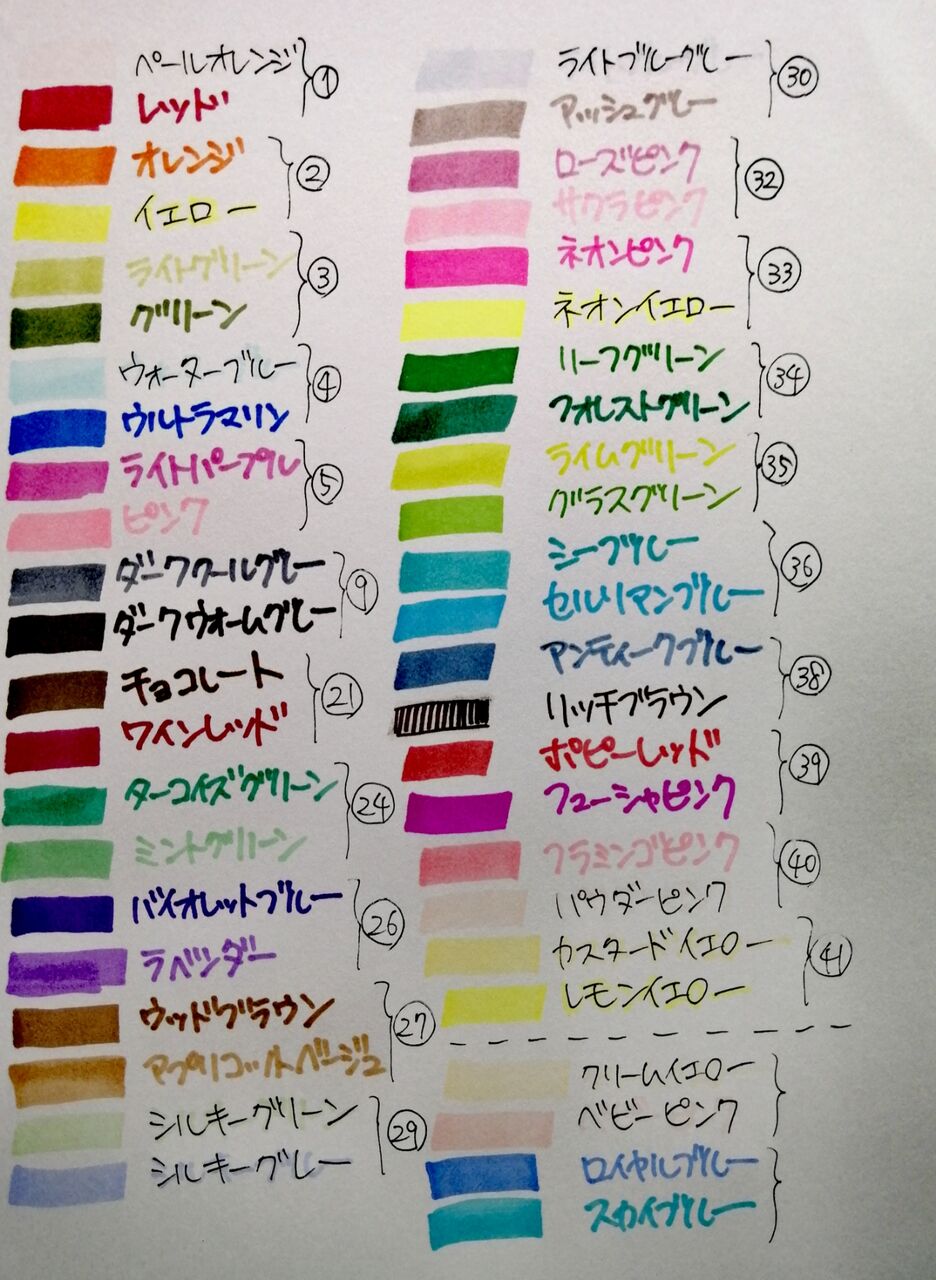 ペールオレンジ
レッド
①
オレンジ
イエロー
②
ライトグリーン
グリーン
③
ウォーターブルー
ウルトラマリン
④
ライトパープル
ピンク
⑤
ダーククールグレー
ダークウォームグレー
⑨
チョコレート
ワインレッド
㉑
ターコイズグリーン
ミントグリーン
㉔
バイオレットブルー
ラベンダー
㉖
ウッドブラウン
アプリコットベージュ
㉗
シルキーグリーン
シルキーグレー
㉙
ライトブルーグレー
アッシュグレー
㉚
ローズピンク
サクラピンク
㉜
ネオンピンク
ネオンイエロー
㉝
リーフグリーン
フォレストグリーン
㉞
ライムグリーン
グラスグリーン
㉟
シーブルー
セルリアンブルー
㊱
アンティークブルー
リッチブラウン
㊳
ポピーレッド
フューシャピンク
㊴
フラミンゴピンク
パウダーピンク
㊵
カスタードイエロー
レモンイエロー
㊶
クリームイエロー
ベビーピンク
ロイヤルブルー
スカイブルー